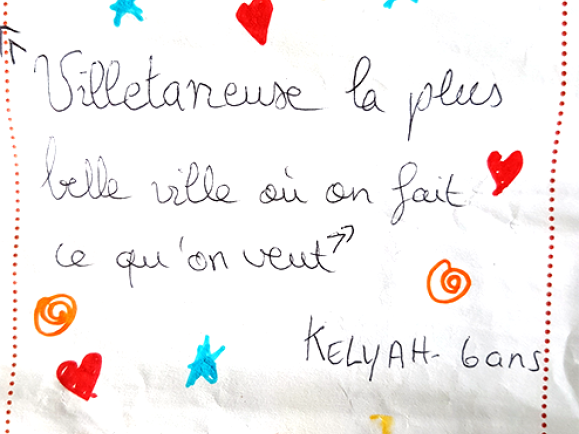 >> Villetaneuse la plus
belle ville où on fait
ce qu'on veut >>
KELYAH - 6 ans